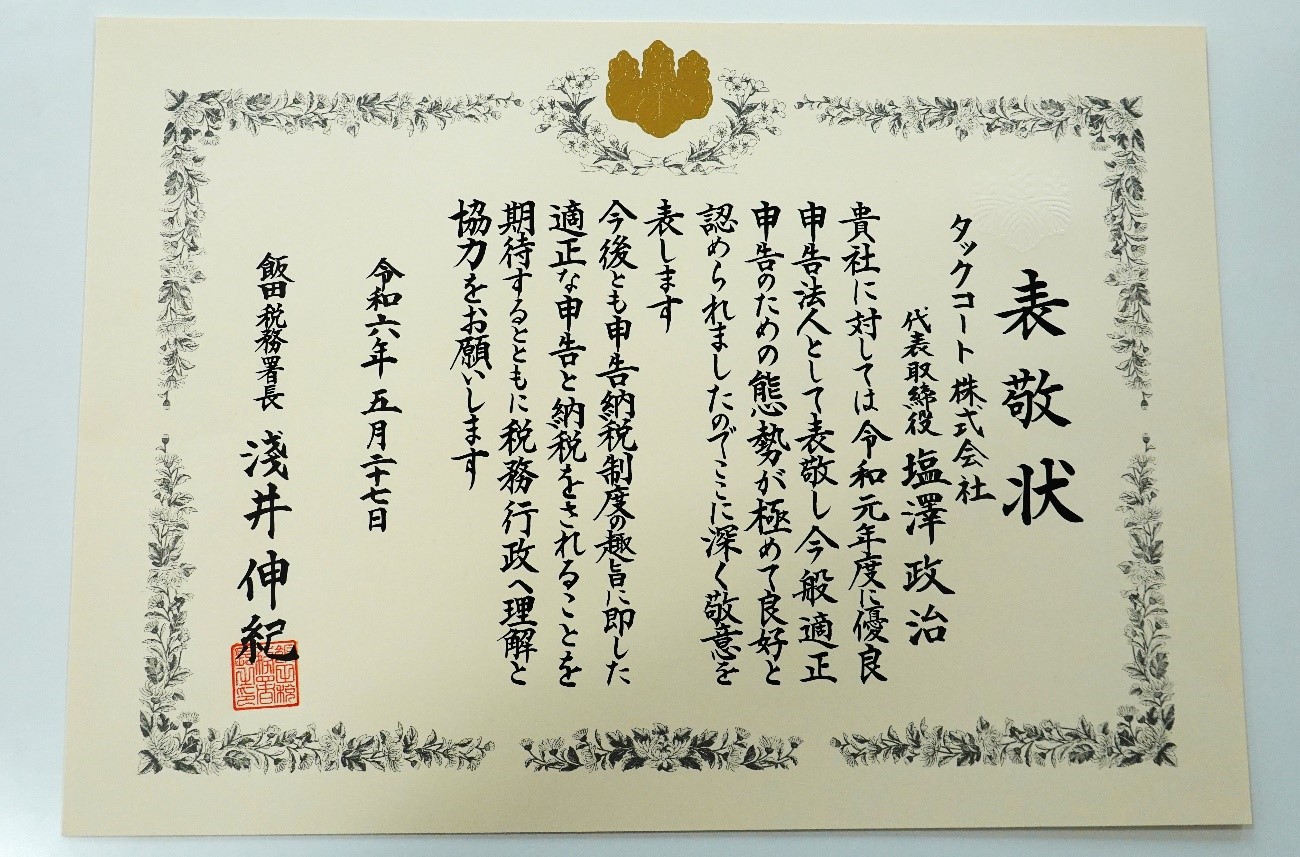 表敬状
タックコート株式会社
代表取締役 塩澤政治
貴社に対しては令和元年度に優良
申告法人として表敬し今般適正
申告のための態勢が極めて良好と
認められましたのでここに深く敬意を
表します
今後とも申告納税制度の趣旨に即した
適正な申告と納税をされることを
期待するとともに税務行政へ理解と
協力をお願いします
令和六年五月二十七日
飯田税務署長 淺井伸紀